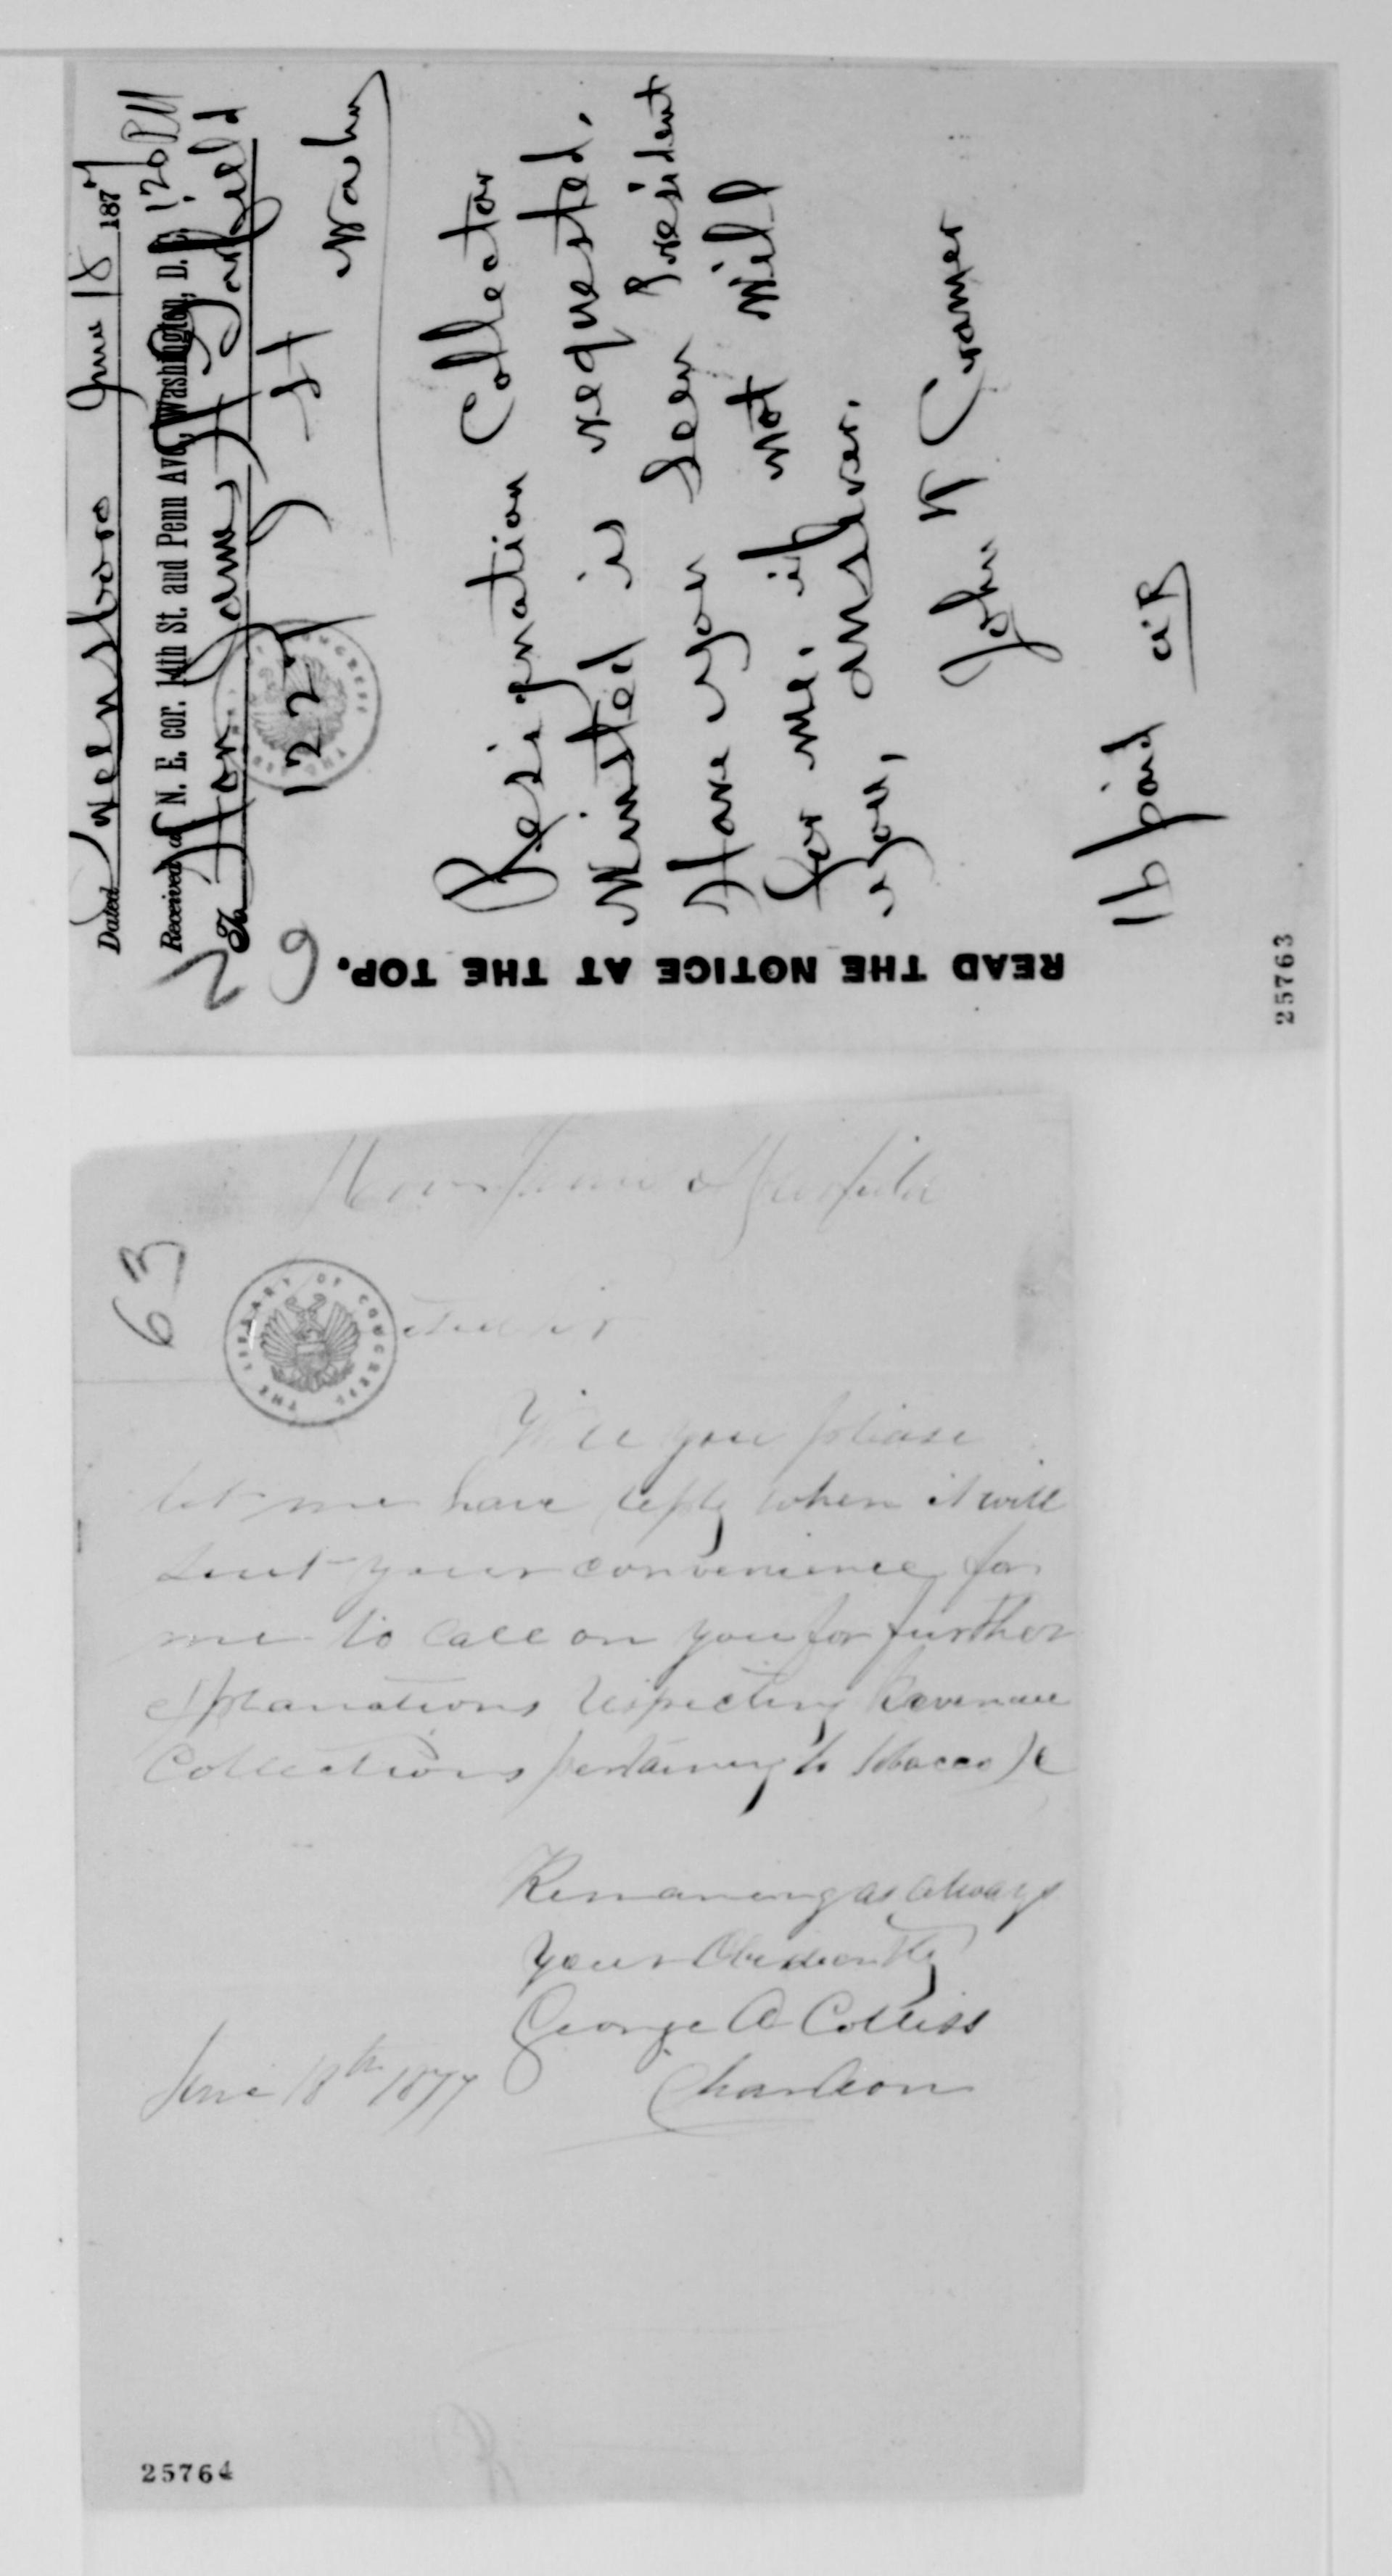 Dated Owensboro June 18 1877
Received at N. E. cor. 14th St. and Penn Ave, Washington, D. C. 120 PM
To Hon James A Garfield
1227 I St Washn
Resignation Collector
Minsted is requested.
Have you seen President
for me. if not will
you, answer.
John K Cramer
16 paid
READ THE NOTICE AT THE TOP.
25763
Hon James A Garfield
63
THE LIBRARY OF CONGRESS
Dear Sir
Will you please
let me have reply when it will
suit your convenience for
me to call on you for further
explanations respecting Revenue
Collections pertaining to tobacco &c
Remaining as always
your Obediently
George A Colliss
June 18th 1877
Chardeon
25764